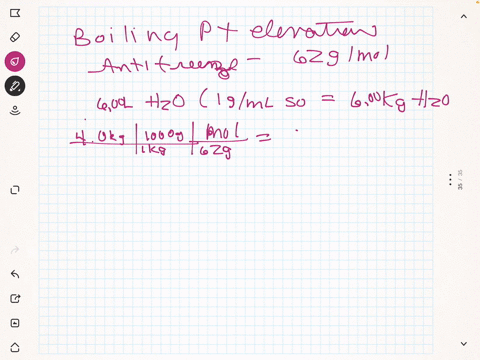 Boiling Pt elevation
Antifreeze - 62g/mol
6.00L H2O (1g/mL so = 6.00Kg H2O
4.0kg | 1000g | mol =
1kg | 62g
35 / 35